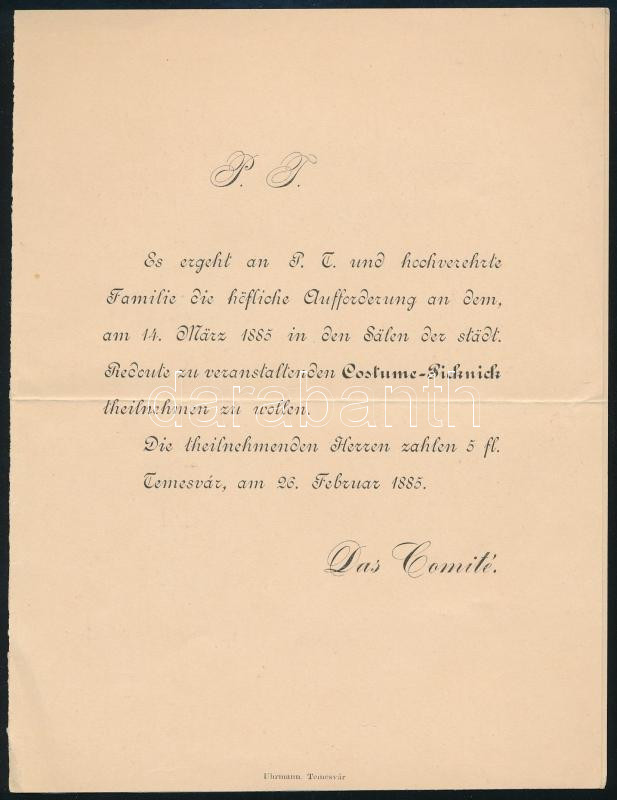 P. T.
Es ergeht an P. T. und hochverehrte
Familie die höfliche Aufforderung an dem,
am 14. März 1885 in den Sälen der städt.
Redoute zu veranstaltenden Costume-Picknick
theilnehmen zu wollen.
Die theilnehmenden Herren zahlen 5 fl.
Temesvár, am 26. Februar 1885.
Das Comité.
Uhrmann. Temesvár
darabanth